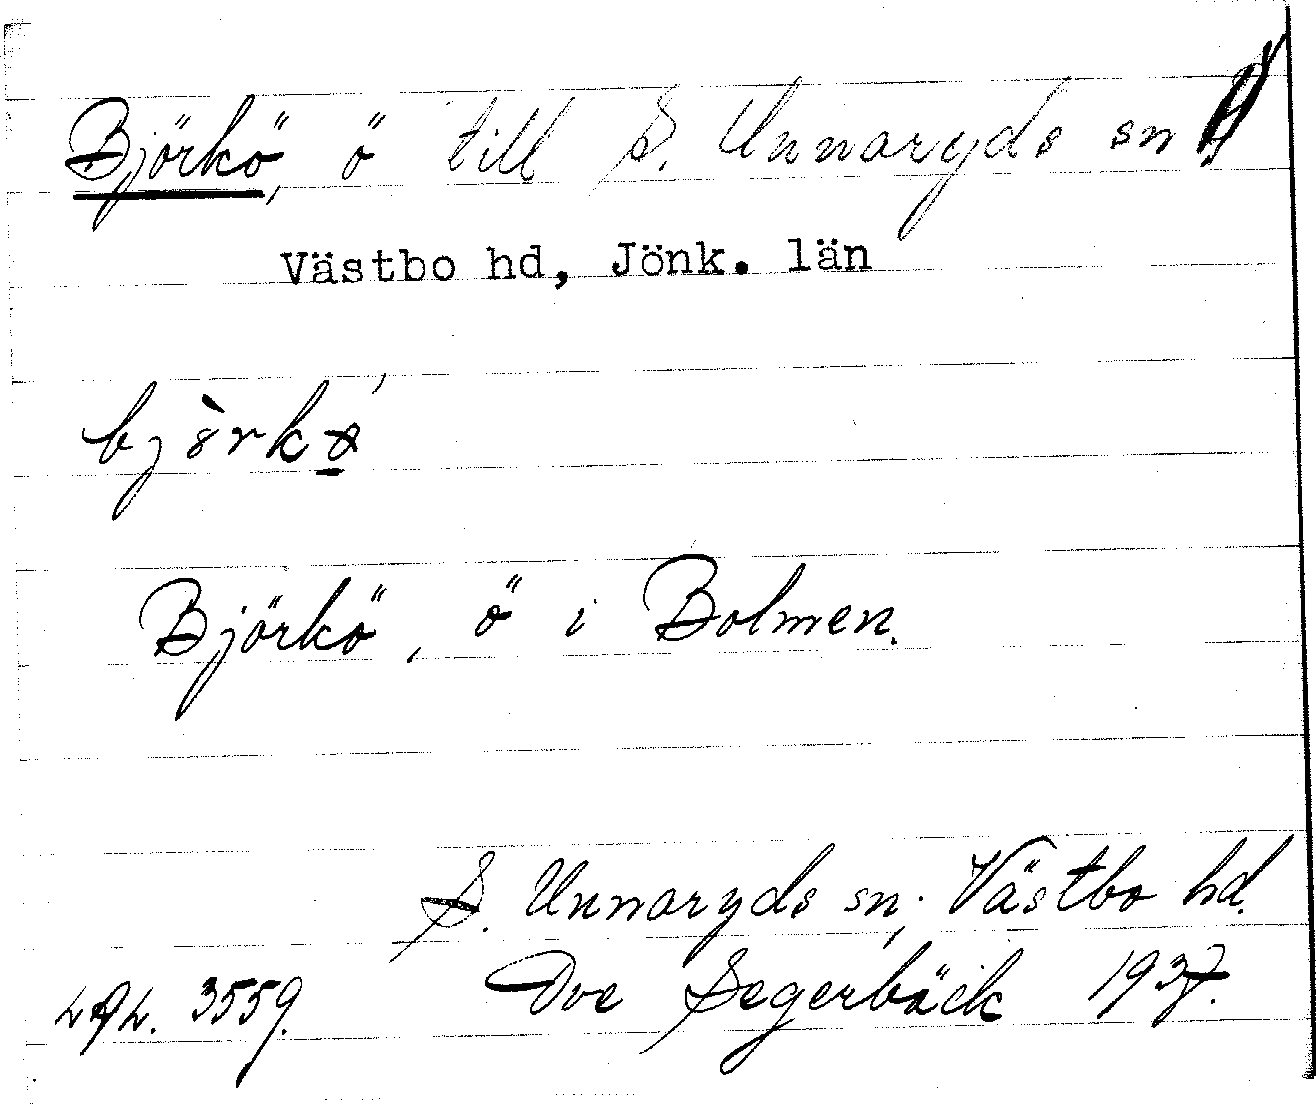 Björkö, ö till S. Unnaryds sn
Västbo hd, Jönk. län
Björkö, ö i Bolmen.
S. Unnaryds sn; Västbo hd.
3559. Ove Segerbäck 1937.